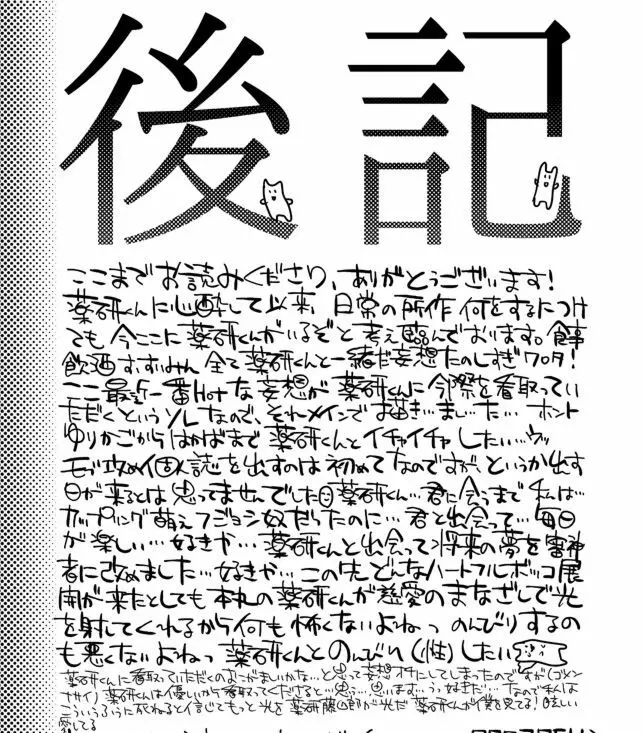 後記
ここまでお読みくださり、ありがとうございます!
薬研くんに心酔して以来、日常の所作 何をするにつけ
ても 今ここに薬研くんがいるぞと考え臨んでおります。食事
飲酒 すいみん 全て薬研くんと一緒だ妄想たのしすぎワロタ!
ここ最近一番Hotな妄想が薬研くんに今際を看取ってい
ただくというソレなので、それメインでお描き…ました…ホント
ゆりかごからはかばまで薬研くんとイチャイチャしたい…ウッ
モブ攻め個人誌を出すのは初めてなのですが、というか出す
日が来るとは思ってませんでした 薬研くん…君に会うまで私は…
カップリング萌えフジョシ奴だったのに…君と出会って…毎日
が楽しい…好きや…薬研くんと出会って将来の夢を審神
者に改めました…好きや…この先どんなハートフルボッコ展
開が来たとしても本丸の薬研くんが慈愛のまなざしで光
を射してくれるから何も怖くないよねっ のんびりするの
も悪くないよねっ 薬研くんとのんびり(性)したい
薬研くんに看取っていただくのおこがましいかな…と思って妄想オチにしてしまったのですが(ゴメン
ナサイ)薬研くんは優しいから看取ってくださると…思っ…思います…うっ好きだ…なので私は
こういうふうに死ねると信じてもっと光を 薬研藤四郎が光だ 薬研くんが僕を見てる!眩しい
愛してる